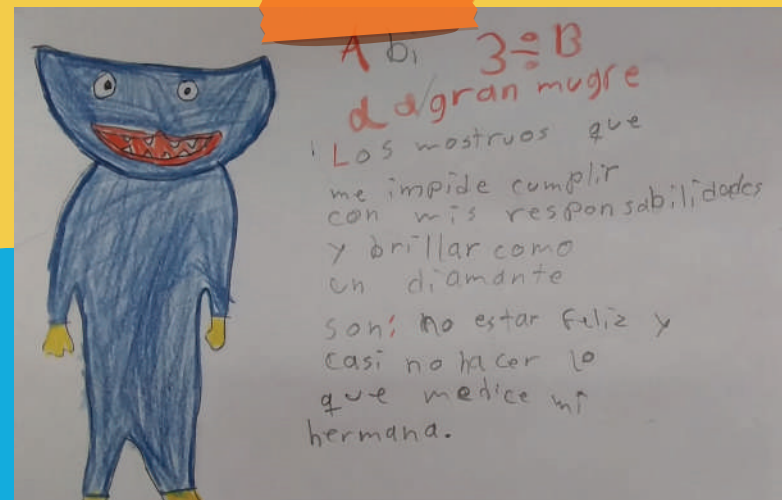 Abi 3÷B
da/gran mugre
Los mostruos que
me impide cumplir
con mis responsabilidades
y brillar como
un diamante
son: no estar feliz y
casi no hacer lo
que medice mi
hermana.